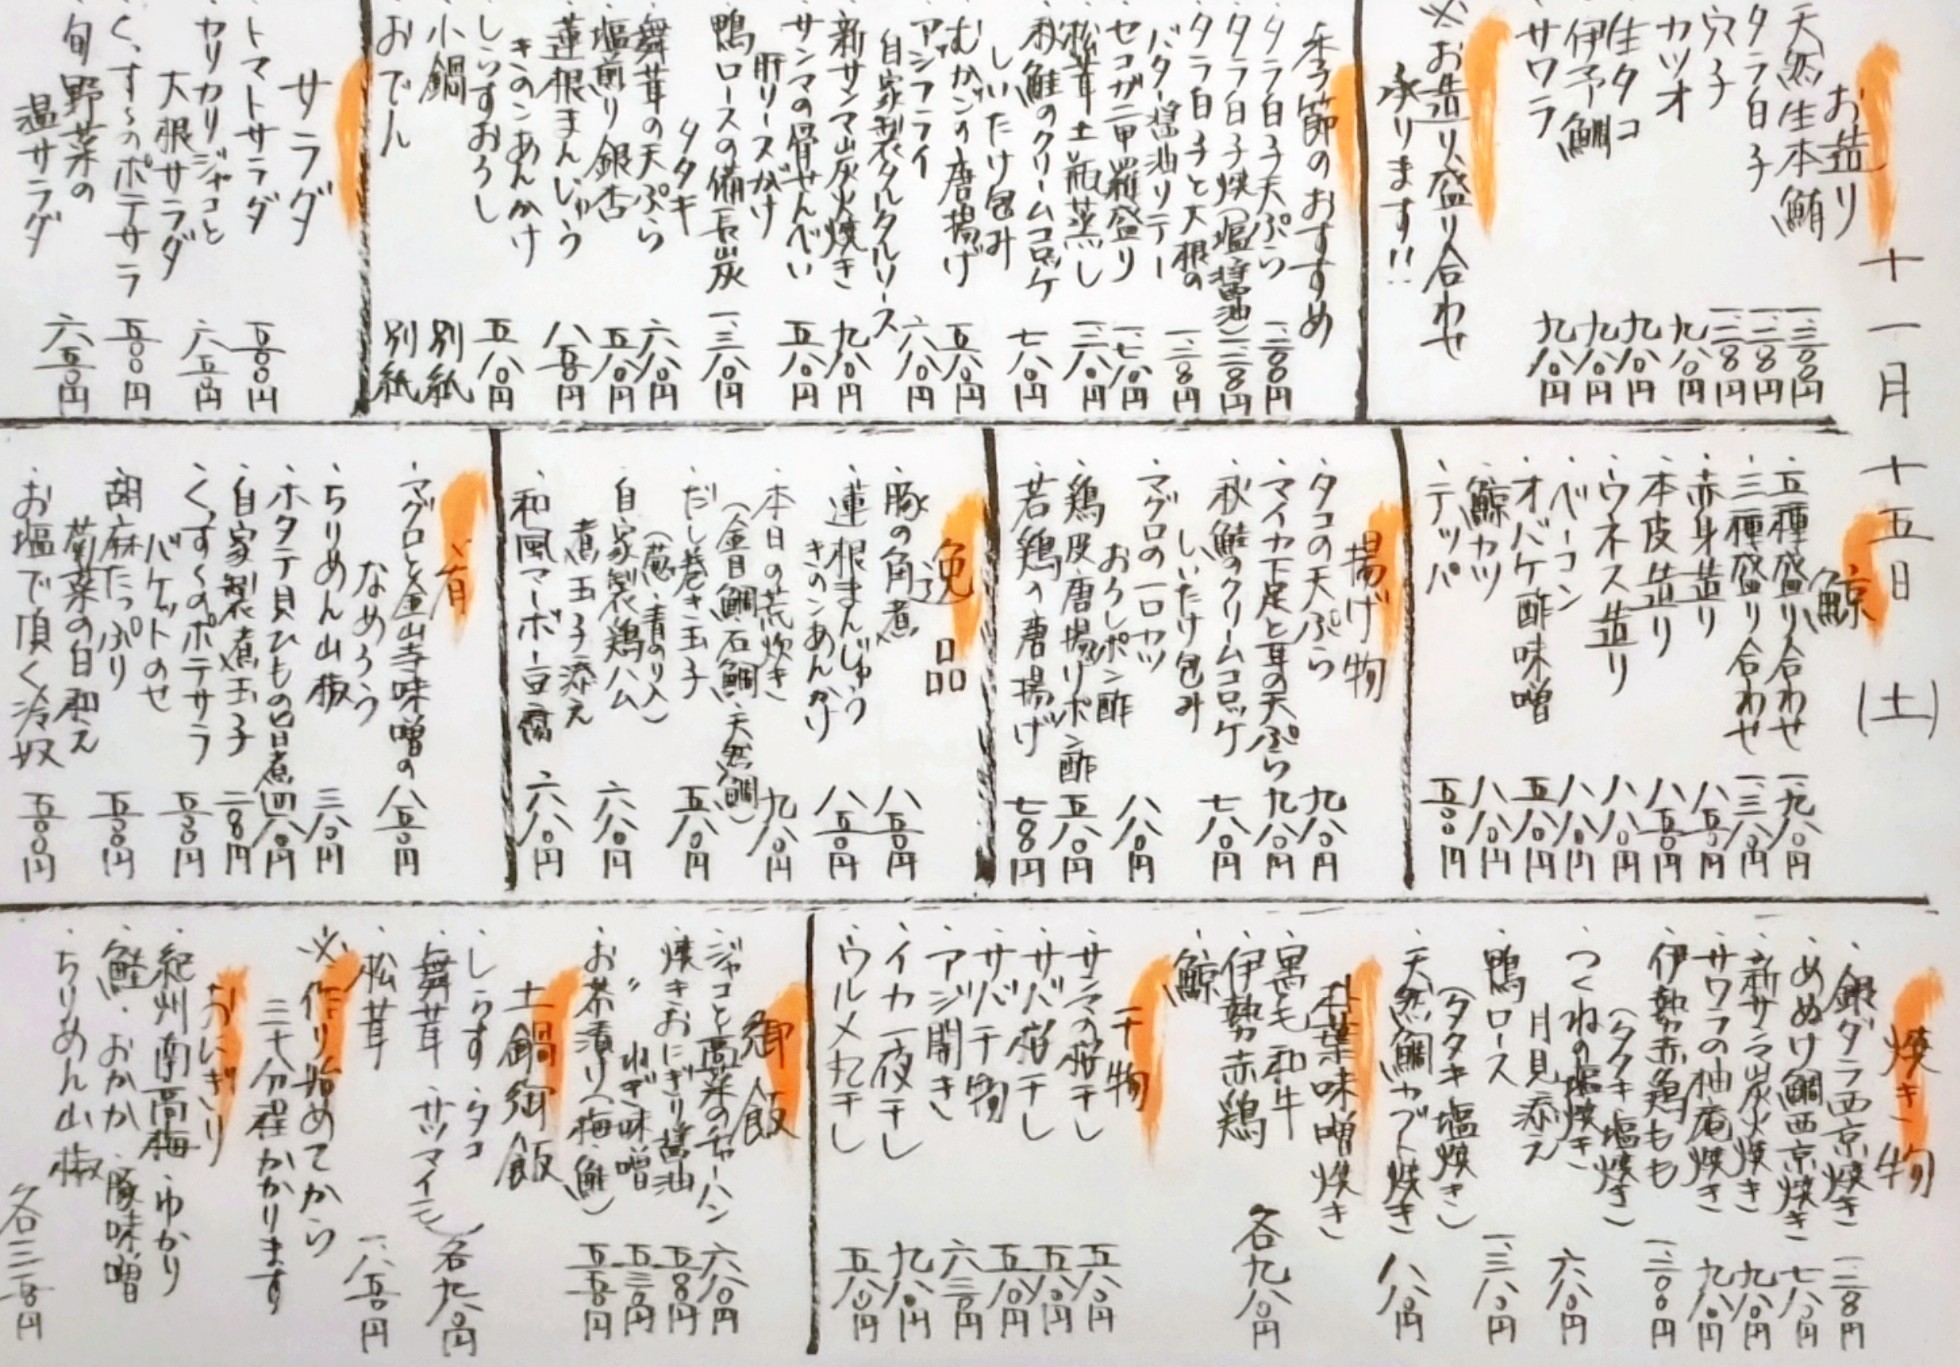 十一月十五日(土)
お造り
・天然生本鮪 一、三〇〇円
・タラ白子 一、二八〇円
・穴子 一、二八〇円
・カツオ 九八〇円
・生タコ 九八〇円
・伊予鯛 九八〇円
・サワラ 九八〇円
※お造り盛り合わせ
承ります!!
季節のおすすめ
・タラ白子天ぷら 一、二八〇円
・タラ白子焼(塩・醤油) 一、二八〇円
・タラ白子と大根の
バター醤油ソテー 一、二八〇円
・セコガニ甲羅盛り 一、七八〇円
・松茸土瓶蒸し 一、三八〇円
・秋鮭のクリームコロッケ
しいたけ包み 七八〇円
・むかごの唐揚げ 五八〇円
・アジフライ
自家製タルタルソース 六八〇円
・新サンマ炭火焼き 九八〇円
・サンマの骨せんべい
肝ソースがけ 五八〇円
・鴨ロースの備長炭
タタキ 一、三八〇円
・舞茸の天ぷら 六八〇円
・塩煎り銀杏 五八〇円
・蓮根まんじゅう
きのこあんかけ 八五〇円
・しらすおろし 五八〇円
・小鍋 別紙
・おでん 別紙
サラダ
・トマトサラダ 五〇〇円
・カリカリジャコと
大根サラダ 六五〇円
・くんすくのポテサラ 五〇〇円
・旬野菜の
温サラダ 六五〇円
鯨
・五種盛り合わせ 一、九八〇円
・三種盛り合わせ 一、三八〇円
・赤身造り 八五〇円
・本皮造り 八五〇円
・ウネス造り 八八〇円
・ベーコン 八八〇円
・オバケ酢味噌 五八〇円
・鯨カツ 八八〇円
・テッパ 五〇〇円
揚げ物
・タコの天ぷら 九八〇円
・マイカ下足と耳の天ぷら 九八〇円
・秋鮭のクリームコロッケ
しいたけ包み 七八〇円
・マグロの一口カツ
おろしポン酢 八八〇円
・鶏皮唐揚げポン酢 五八〇円
・若鶏の唐揚げ 七八〇円
逸品
・豚の角煮 八五〇円
・蓮根まんじゅう
きのこあんかけ 八五〇円
・本日の荒炊き 九八〇円
(金目鯛・石鯛・天然鯛)
・だし巻き玉子 五八〇円
(葱・青のり入)
・自家製鶏ハム
煮玉子添え 六八〇円
・和風マーボー豆腐 六八〇円
肴
・マグロと金山寺味噌の
なめろう 八五〇円
・ちりめん山椒 三八〇円
・ホタテ貝ひもの旨煮 四八〇円
・自家製煮玉子 二八〇円
・くんすくのポテサラ
バケットのせ 五〇〇円
・胡麻たっぷり
菊菜の白和え 五〇〇円
・お塩で頂く冷奴 五〇〇円
焼き物
・銀ダラ西京焼き 一、二八〇円
・めぬけ鯛西京焼き 七八〇円
・新サンマ炭火焼き 九八〇円
・サワラの柚庵焼き 九八〇円
・伊勢赤鶏もも
(タタキ・塩焼き) 一、二〇〇円
・つくねの塩焼き
月見添え 六八〇円
・鴨ロース
(タタキ・塩焼き) 一、三八〇円
・天然鯛カブト焼き 八八〇円
朴葉味噌焼き
・黒毛和牛
・伊勢赤鶏
・鯨 各九八〇円
干物
・サンマの桜干し 五八〇円
・サバ桜干し 五八〇円
・サバ干物 五八〇円
・アジ開き 六三〇円
・イカ一夜干し 九八〇円
・ウルメ丸干し 五八〇円
御飯
・ジャコと高菜のチャーハン 六八〇円
・焼きおにぎり醤油 五〇〇円
・〃 ねぎ味噌 五三〇円
・お茶漬け(梅・鮭) 五五〇円
土鍋御飯
・しらす・タコ
・舞茸・サツマイモ 各九八〇円
・松茸 一、八五〇円
※作り始めてから
三十分程かかります
おにぎり
・紀州南高梅・ゆかり
・鮭・おかか・豚味噌
・ちりめん山椒
各三五〇円